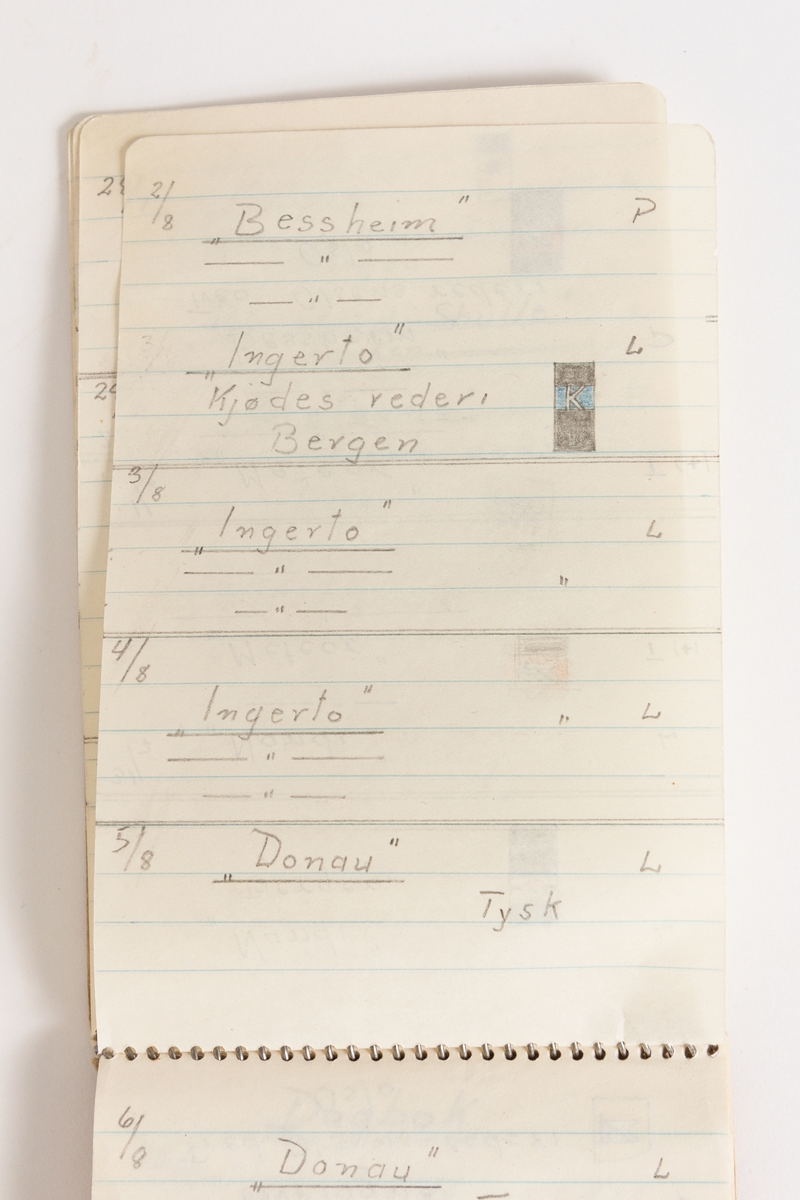 2/8 „Bessheim" P
— " —
— " —
„Ingerto" L
Kjødes rederi K
Bergen
3/8
„Ingerto" L
— " — "
— " —
4/8
„Ingerto" " L
— " —
— " —
5/8 „Donau" L
Tysk
6/8
„Donau" L